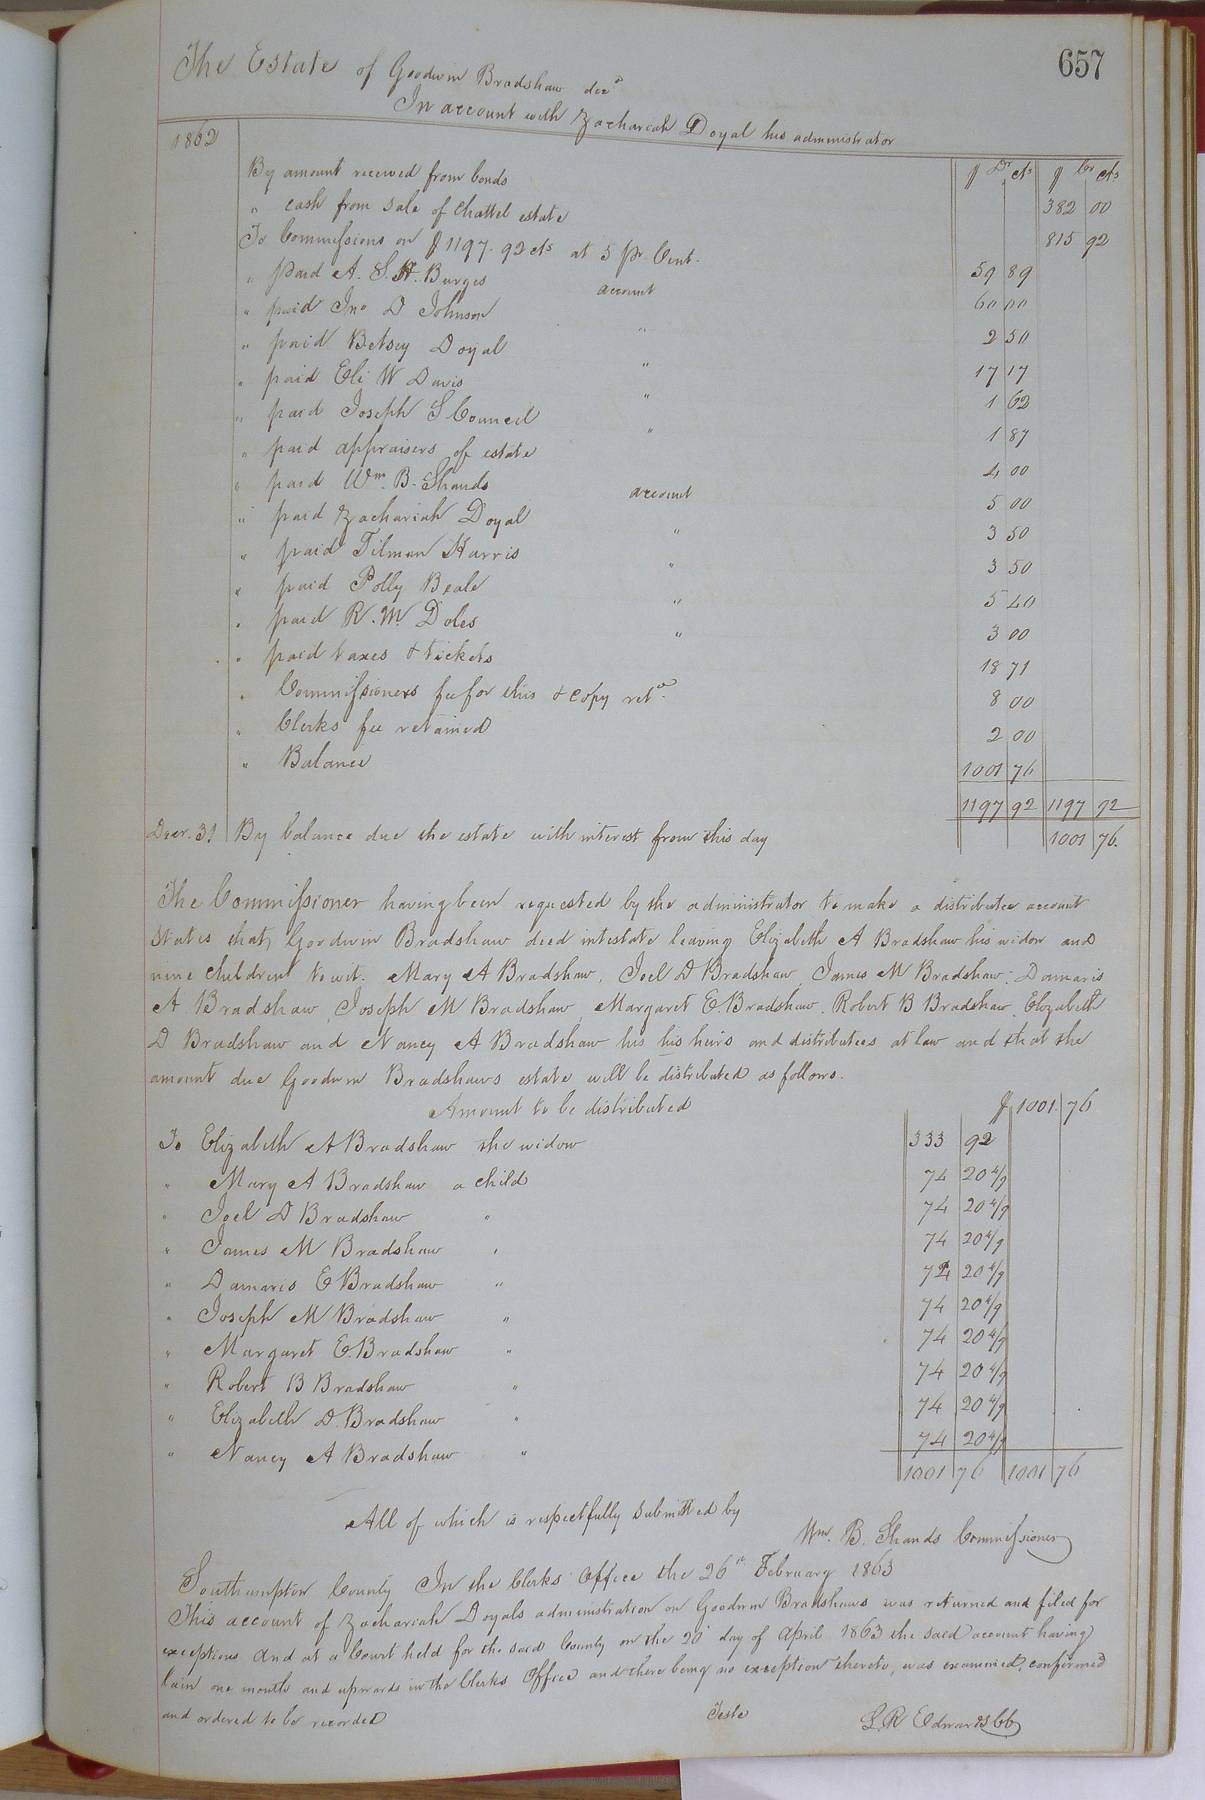 657
The Estate of Goodwin Bradshaw decd
In account with Zachariah Doyal his administrator
1862
$ Dr cts $ Cr cts
By amount received from bonds 382 00
" cash from sale of Chattel estate 815 92
To Commissions on $1197.92 cts at 5 pr Cent. 59 89
" paid A. S. H. Burges account 60 00
" paid Jno D Johnson " 2 50
" paid Betsey Doyal " 17 17
" paid Eli W Davis " 1 62
" paid Joseph S Council " 1 87
" paid appraisers of estate 4 00
" paid Wm. B. Shands account 5 00
" paid Zachariah Doyal " 3 50
" paid Tilman Harris " 3 50
" paid Polly Beale " 5 40
" paid R. M. Doles " 3 00
" paid taxes & tickets 18 71
" Commissioners fee for this & copy retd. 8 00
" Clerks fee retained 2 00
" Balance 1001 76
1197 92 1197 92
Decr. 31 By balance due the estate with interest from this day 1001 76.
The Commissioner having been requested by the administrator to make a distributee account
states that Goodwin Bradshaw died intestate leaving Elizabeth A Bradshaw his widow and
nine children to wit. Mary A Bradshaw, Joel D Bradshaw, James M Bradshaw, Damaris
A Bradshaw, Joseph M Bradshaw, Margaret E. Bradshaw, Robert B Bradshaw, Elizabeth
D Bradshaw and Nancy A Bradshaw his his heirs and distributees at law and that the
amount due Goodwin Bradshaws estate will be distributed as follows.
Amount to be distributed $ 1001 76
To Elizabeth A Bradshaw the widow 333 92
" Mary A Bradshaw a child 74 20 4/9
" Joel D Bradshaw " 74 20 4/9
" James M Bradshaw " 74 20 4/9
" Damaris E Bradshaw " 74 20 4/9
" Joseph M Bradshaw " 74 20 4/9
" Margaret E. Bradshaw " 74 20 4/9
" Robert B Bradshaw " 74 20 4/9
" Elizabeth D. Bradshaw " 74 20 4/9
" Nancy A Bradshaw " 74 20 4/9
1001 76 1001 76
All of which is respectfully submitted by
Wm. B. Shands Commissioner
Southampton County In the Clerks Office the 26th February 1863
This account of Zachariah Doyals administration on Goodwin Bradshaws was returned and filed for
exceptions And at a Court held for the said County on the 20 day of April 1863 the said account having
lain one month and upwards in the Clerks Office and there being no exception thereto, was examined, confirmed
and ordered to be recorded Teste L R Edwards CC